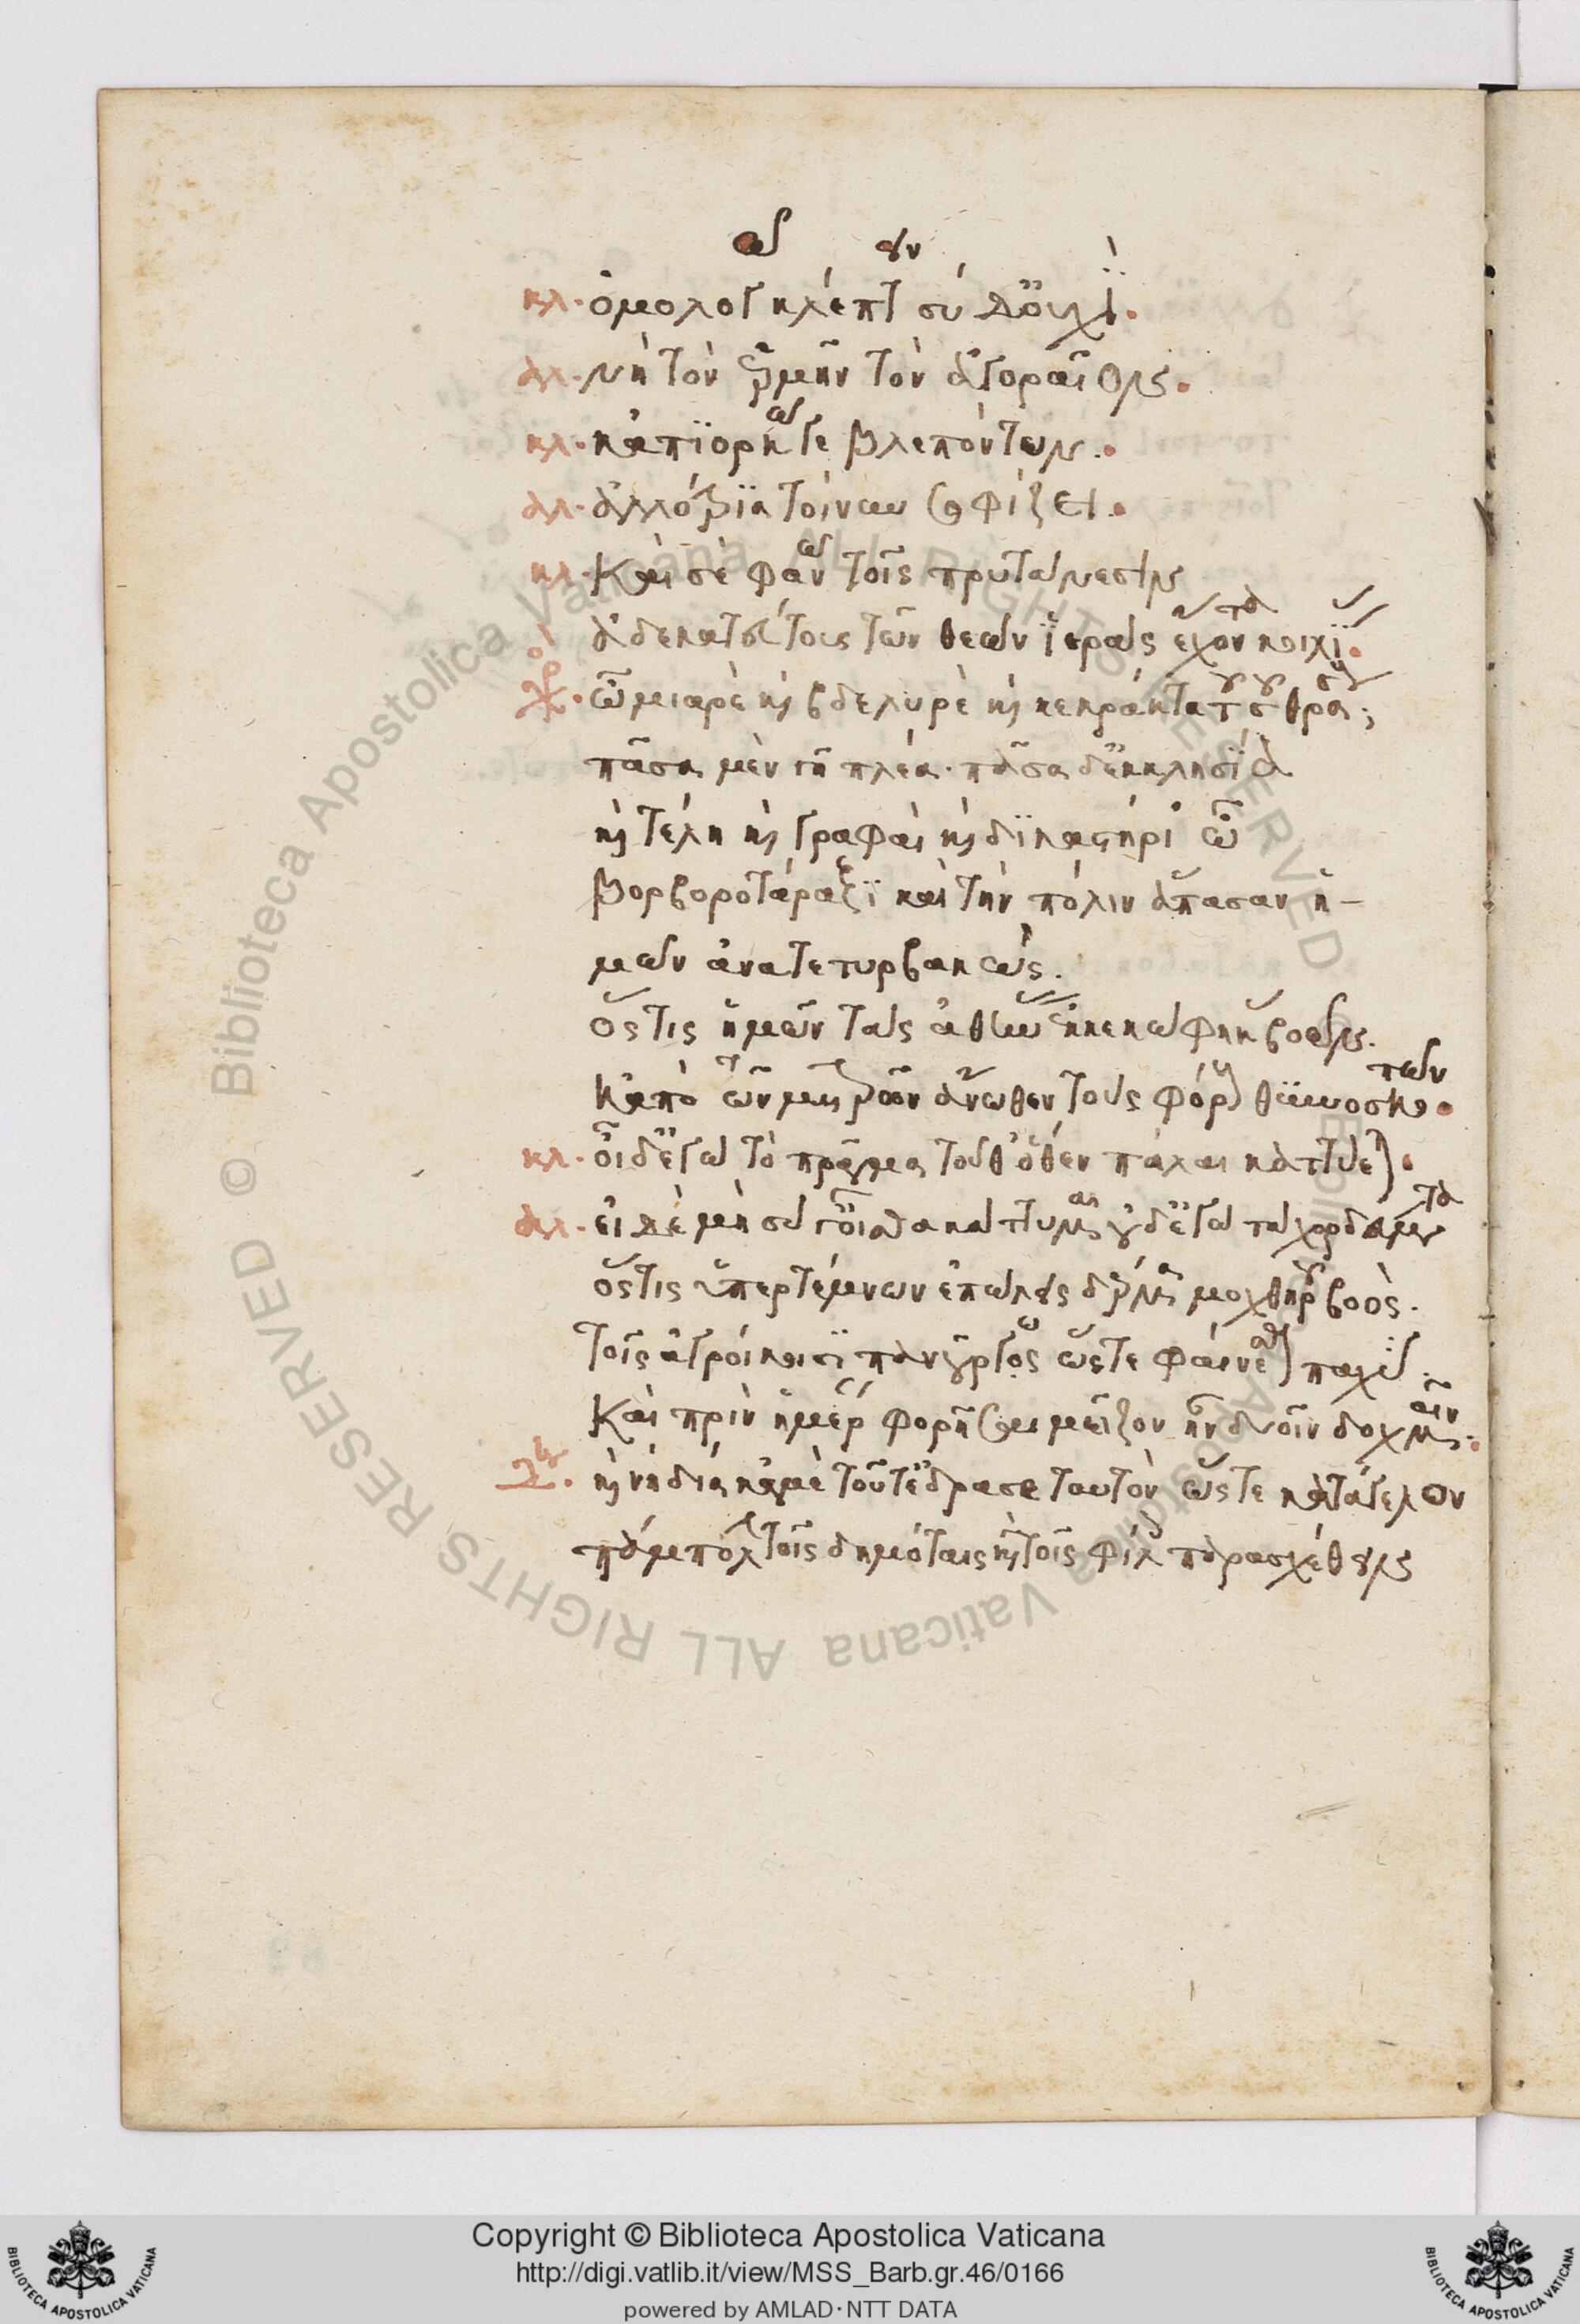 κλ. ὁμολογῶ κλέπτουν σὺ δ' οὐχί.
ἀλ. νὴ τὸν ἑρμῆν τὸν ἀγοραῖον.
κλ. κἀπιορκῶ γε βλεπόντων.
ἀλ. ἀλλότρια τοίνυν σοφίζει.
κλ. καί σε φανῶ τοῖς πρυτάνεσιν
ἀδεκατεύτους τῶν θεῶν ἱερὰς ἔχοντα κοιλί.
χορ. ὦ μιαρὲ καὶ βδελυρὲ καὶ κεκράκτα τοῦ σοῦ θράσους
πᾶσα μὲν γῆ πλέα. πᾶσα δ' ἐκκλησία
καὶ τέλη καὶ γραφαὶ καὶ δικαστήρι' ὦ
βορβοροτάραξι καὶ τὴν πόλιν ἅπασαν ἡ-
μῶν ἀνατετυρβακώς.
ὅστις ἡμῶν τὰς ἀθήνας ἐκκεκώφηκας βοῶν.
κἀπὸ τῶν πετρῶν ἄνωθεν τοὺς φόρους θυννοσκοπῶν.
κλ. οἶδ' ἐγὼ τὸ πρᾶγμα τοῦθ' ὅθεν πάλαι καττύεται.
ἀλ. εἰ δὲ μὴ σύ γ' οἶσθα κάττυμα οὐδ' ἐγὼ χορδεύματα
ὅστις ὑποτέμνων ἐπώλεις δέρμα μοχθηροῦ βοὸς.
τοῖς ἀγροίκοισι πανούργως ὥστε φαίνεσθαι παχύ.
καὶ πρὶν ἡμέραν φορῆσαι μεῖζον ἦν δυοῖν δοχμαῖν.
καὶ νὴ δία κἀμὲ τοῦτ' ἔδρασε ταυτὸν ὥστε κατάγελων
πάμπολυν τοῖς δημόταις καὶ τοῖς φίλοις παρασχέθουν